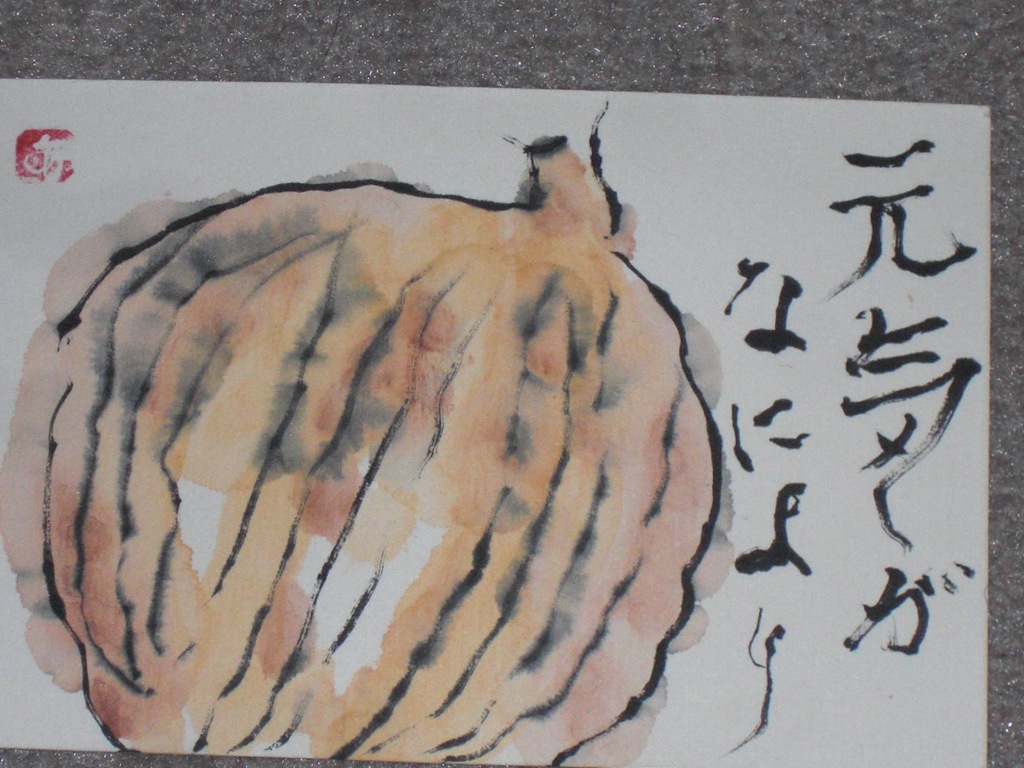 元気が
なにより